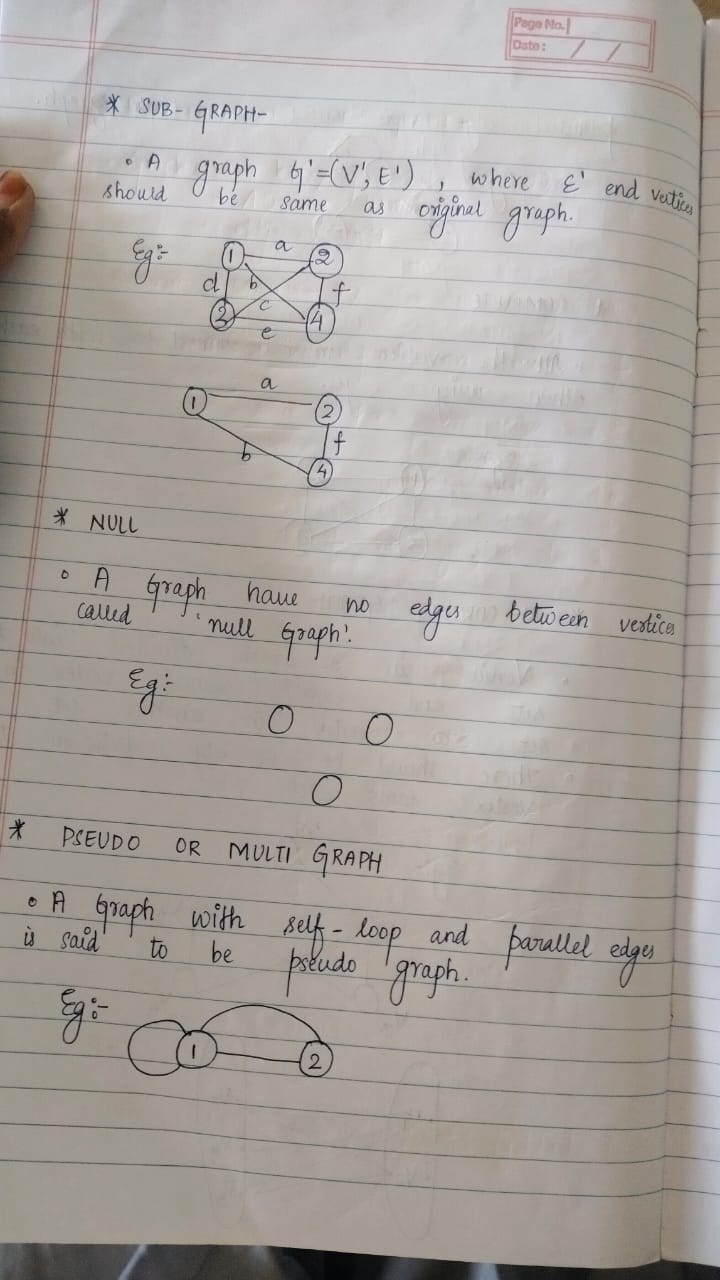 Page No.
Date: / /
* SUB-GRAPH-
• A graph G'=(V', E'), where E' end vertices
should be same as original graph.
Eg:-
1 a 2
d b c f
3 e 4
1 a 2
b f
4
* NULL
• A Graph have no edges between vertices
called 'null Graph'.
Eg:-
* PSEUDO OR MULTI GRAPH
• A Graph with self-loop and parallel edges
is said to be pseudo graph.
Eg:-
1 2